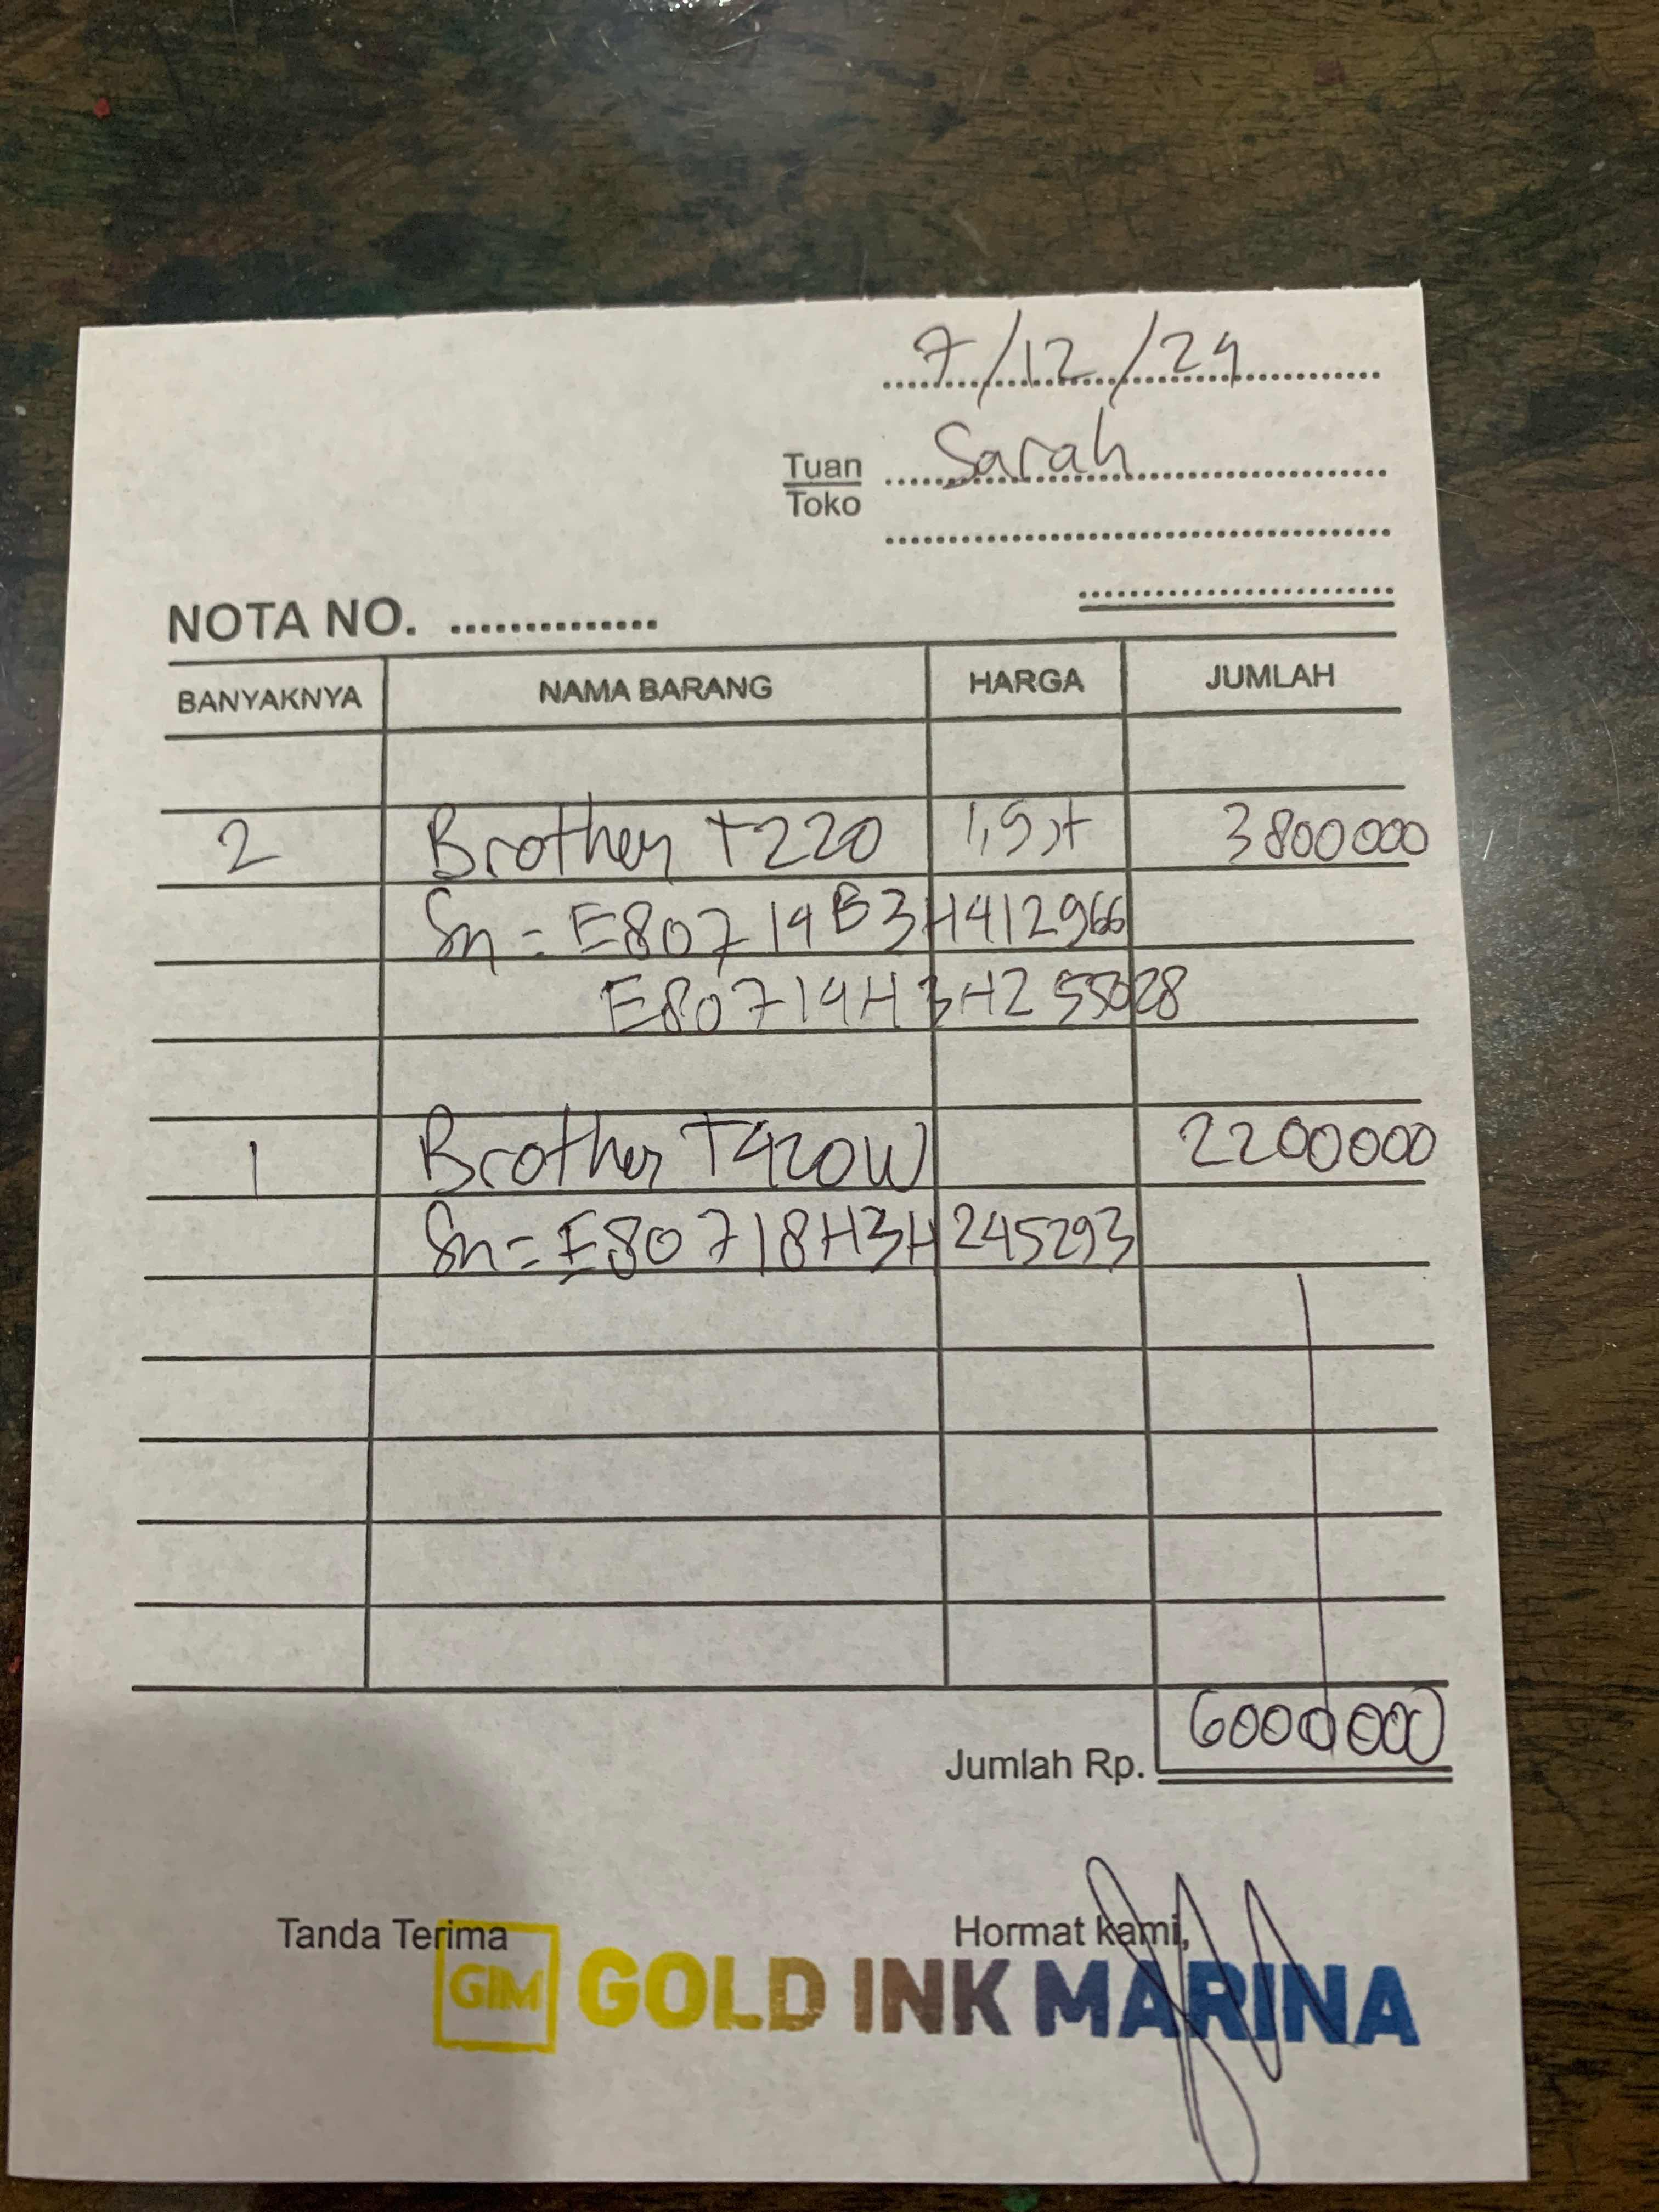 7/12/24
Tuan Sarah
Toko
NOTA NO.
BANYAKNYA NAMA BARANG HARGA JUMLAH
2 Brother T220 1,9 jt 3800000
Sn = E80719B3H412966
E80719H3H255028
1 Brother T420W 2200000
Sn = E80718H3H245293
Jumlah Rp. 6000000
Tanda Terima Hormat kami,
GIM GOLD INK MARINA